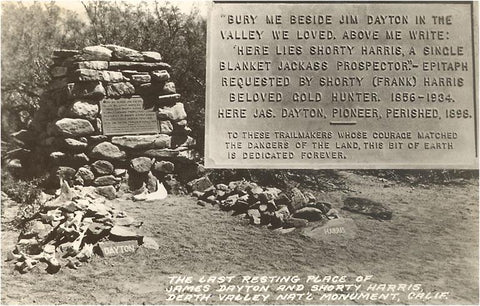 "BURY ME BESIDE JIM DAYTON IN THE
VALLEY WE LOVED. ABOVE ME WRITE:
'HERE LIES SHORTY HARRIS, A SINGLE
BLANKET JACKASS PROSPECTOR.'"– EPITAPH
REQUESTED BY SHORTY (FRANK) HARRIS
BELOVED GOLD HUNTER. 1856-1934.
HERE JAS. DAYTON, PIONEER, PERISHED, 1898.
TO THESE TRAILMAKERS WHOSE COURAGE MATCHED
THE DANGERS OF THE LAND, THIS BIT OF EARTH
IS DEDICATED FOREVER.
HARRIS
DAYTON
THE LAST RESTING PLACE OF
JAMES DAYTON AND SHORTY HARRIS,
DEATH VALLEY NAT'L MONUMENT, CALIF.